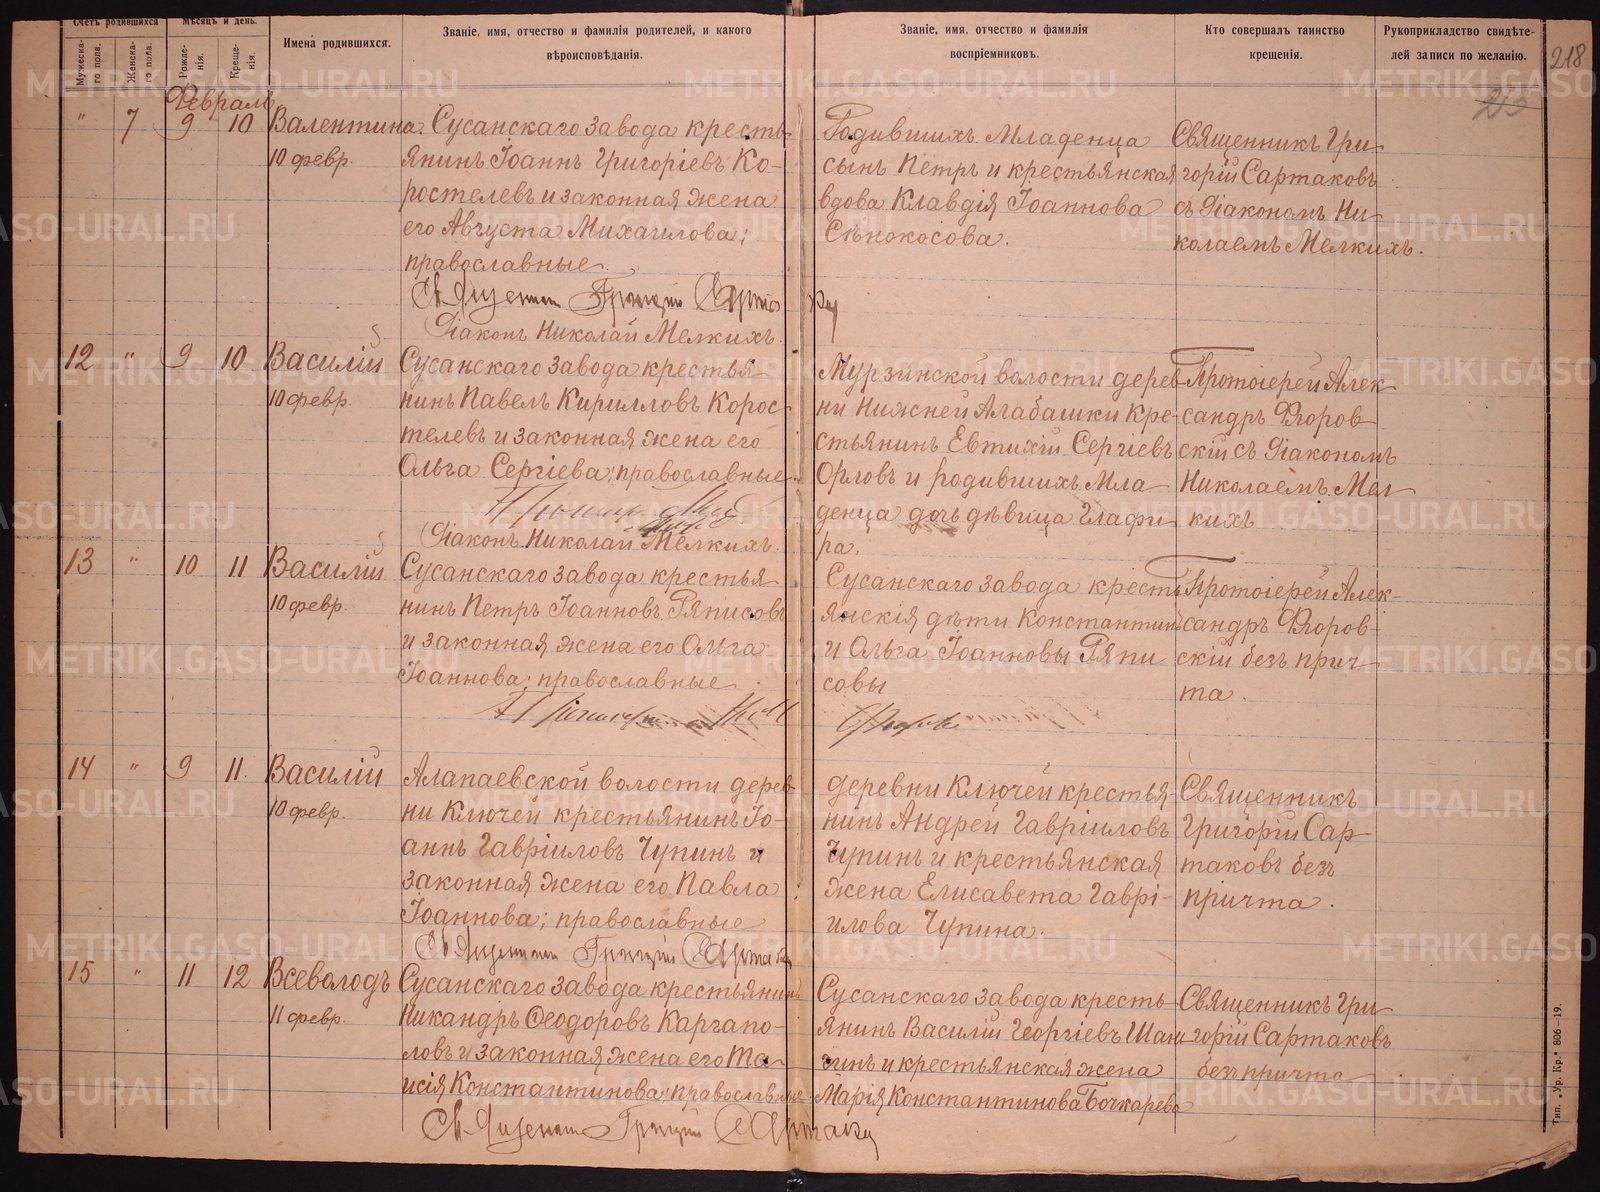 Счетъ родившихся
Мѣсяцъ и день.
Мужеска-
го пола.
Женска-
го пола.
Рожде-
нія.
Креще-
нія.
Имена родившихся.
Званіе, имя, отчество и фамилія родителей, и какого
вѣроисповѣданія.
Званіе, имя, отчество и фамилія
воспріемниковъ.
Кто совершалъ таинство
крещенія.
Рукоприкладство свидѣте-
лей записи по желанію.
218
213
Февраль
" 7 9 10 Валентина
10 февр.
Сусанскаго завода кресть-
янинъ Іоаннъ Григоріевъ Ко-
ростелевъ и законная жена
его Августа Михаилова;
православные.
Священникъ Григорій Сартаков
Діаконъ Николай Мелкихъ.
Родившихъ Младенца
сынъ Петръ и крестьянская
вдова Клавдія Іоаннова
Сѣнокосова.
Священникъ Гри-
горій Сартаковъ
съ Діакономъ Ни-
колаемъ Мелкихъ.
12 " 9 10 Василій
10 февр.
Сусанскаго завода крестья-
нинъ Павелъ Кирилловъ Корос-
телевъ и законная жена его
Ольга Сергіева; православные.
Діаконъ Николай Мелкихъ.
Мурзинской волости дерев-
ни Нижней Алабашки кре-
стьянинъ Евтихій Сергіевъ
Орловъ и родившихъ Мла-
денца дочь дѣвица Глафи-
ра.
Протоіерей Алек-
сандръ Флоров-
скій съ Діакономъ
Николаемъ Мел-
кихъ
13 " 10 11 Василій
10 февр.
Сусанскаго завода крестья-
нинъ Петръ Іоанновъ Ряписовъ
и законная жена его Ольга
Іоаннова; православные.
Сусанскаго завода кресть-
янскія дѣти Константинъ
и Ольга Іоанновы Ряпи
совы
Протоіерей Алек-
сандръ Флоров-
скій безъ прич-
та.
14 " 9 11. Василій
10 февр.
Алапаевской волости дерев-
ни Ключей крестьянинъ Іо-
аннъ Гавріиловъ Чупинъ и
законная жена его Павла
Іоаннова; православные
Священникъ Григорій Сартаков
деревни Ключей крестья-
нинъ Андрей Гавріиловъ
Чупинъ и крестьянская
жена Елисавета Гаврі-
илова Чупина.
Священникъ
Григорій Сар-
таковъ безъ
причта.
15 " 11 12 Всеволодъ
11 февр.
Сусанскаго завода крестьянинъ
Никандръ Ѳеодоровъ Каргапо-
ловъ и законная жена его Та-
исія Константинова; православные
Священникъ Григорій Сартаков
Сусанскаго завода кресть-
янинъ Василій Георгіевъ Шан-
гинъ и крестьянская жена
Марія Константинова Бочкарева
Священникъ Гри-
горій Сартаковъ
безъ причта
Тип. „Ур. Кр." 806—19.
METRIKI.GASO-URAL.RU